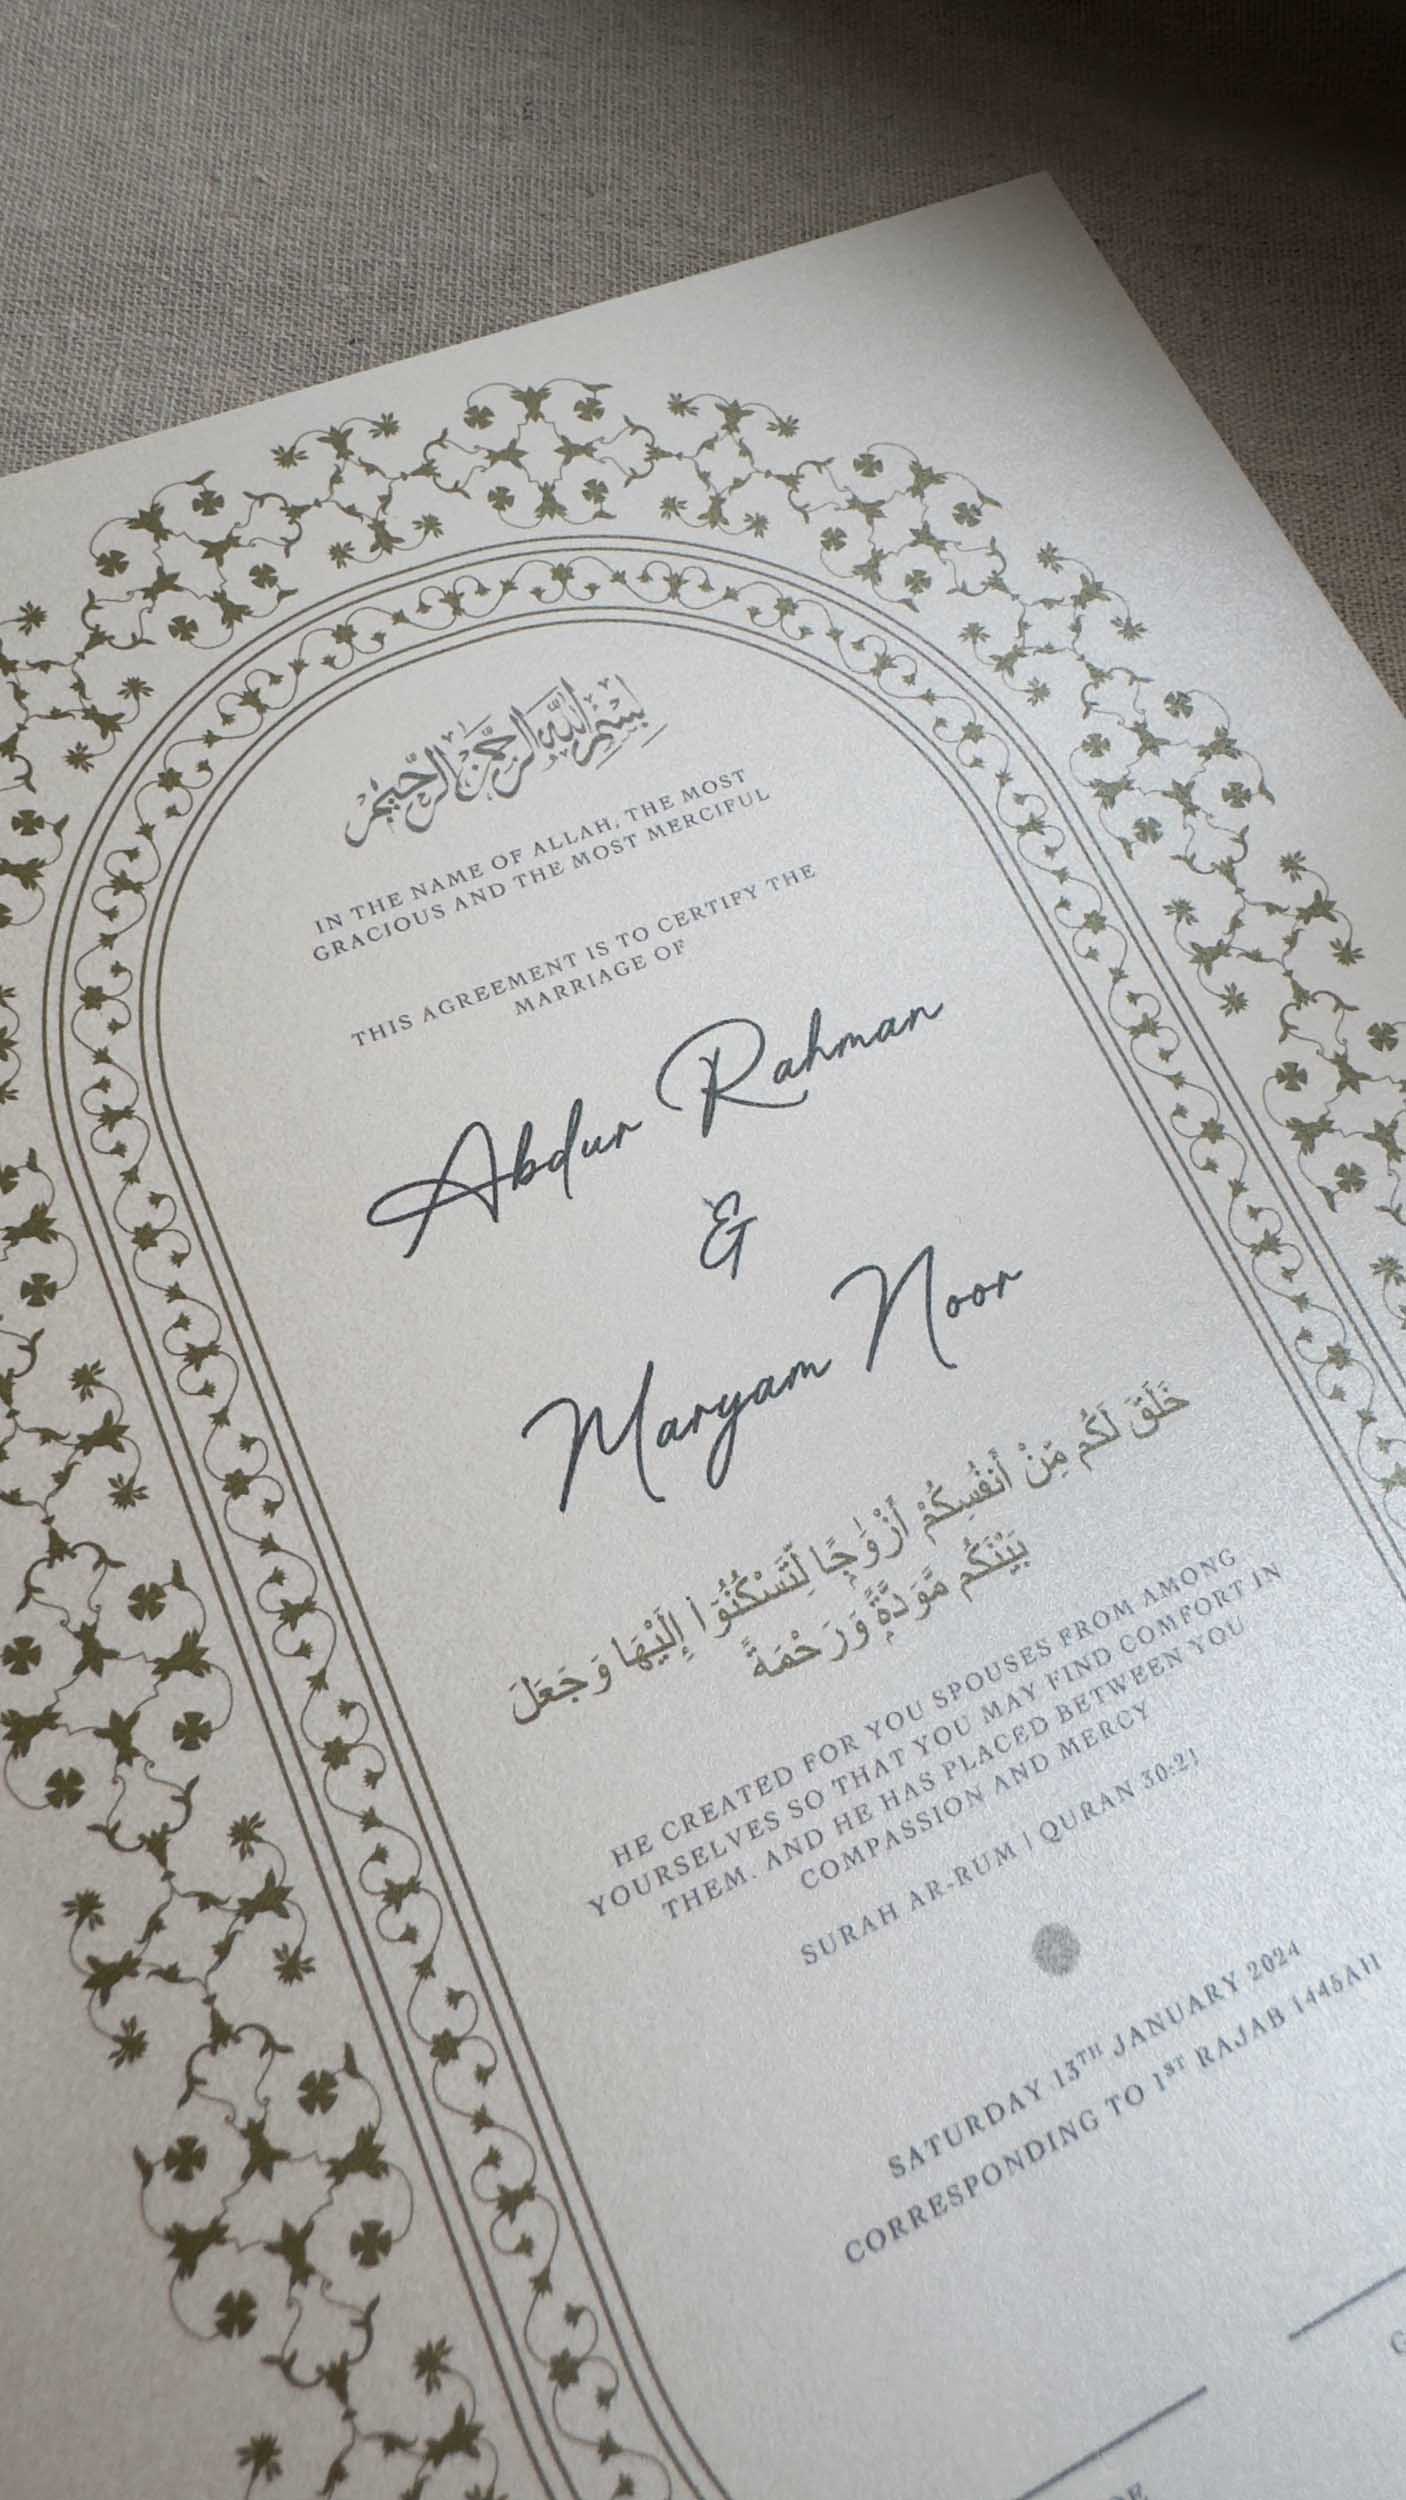 بِسْمِ اللَّهِ الرَّحْمَنِ الرَّحِيمِ
IN THE NAME OF ALLAH, THE MOST
GRACIOUS AND THE MOST MERCIFUL
THIS AGREEMENT IS TO CERTIFY THE
MARRIAGE OF
Abdur Rahman
&
Maryam Noor
خَلَقَ لَكُم مِّنْ أَنفُسِكُمْ أَزْوَٰجًا لِّتَسْكُنُوٓا۟ إِلَيْهَا وَجَعَلَ
بَيْنَكُم مَّوَدَّةً وَرَحْمَةً
HE CREATED FOR YOU SPOUSES FROM AMONG
YOURSELVES SO THAT YOU MAY FIND COMFORT IN
THEM. AND HE HAS PLACED BETWEEN YOU
COMPASSION AND MERCY
SURAH AR-RUM | QURAN 30:21
SATURDAY 13TH JANUARY 2024
CORRESPONDING TO 1ST RAJAB 1445AH